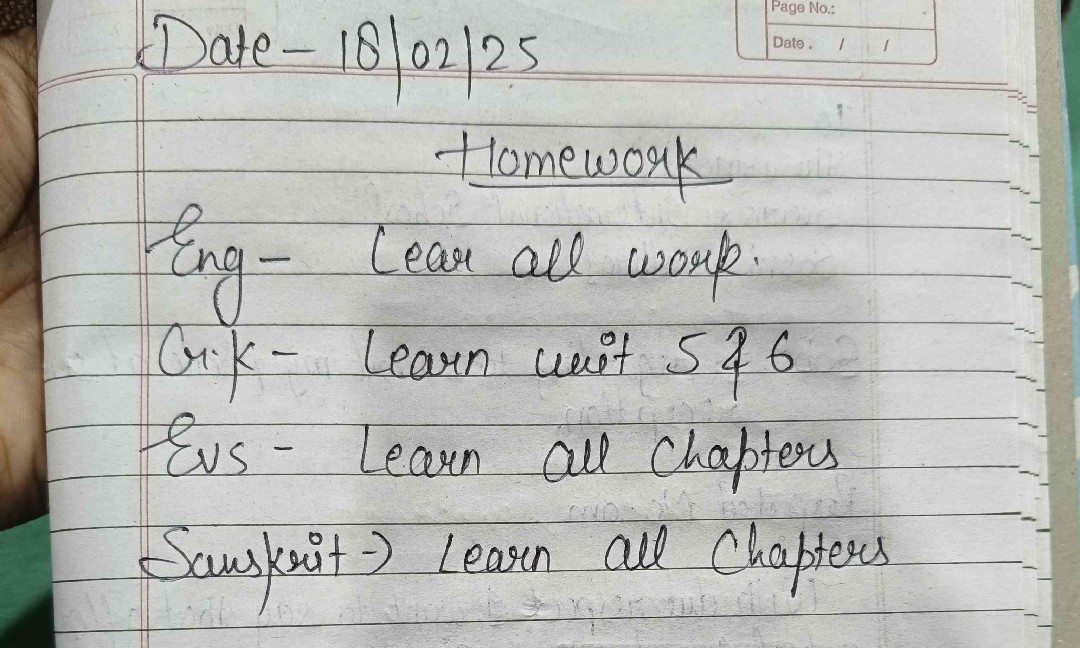 Page No.:
Date. / /
Date - 18/02/25
Homework
Eng - Lear all work.
G.K - Learn unit 5 & 6
Evs - Learn all Chapters
Sanskrit → Learn all Chapters